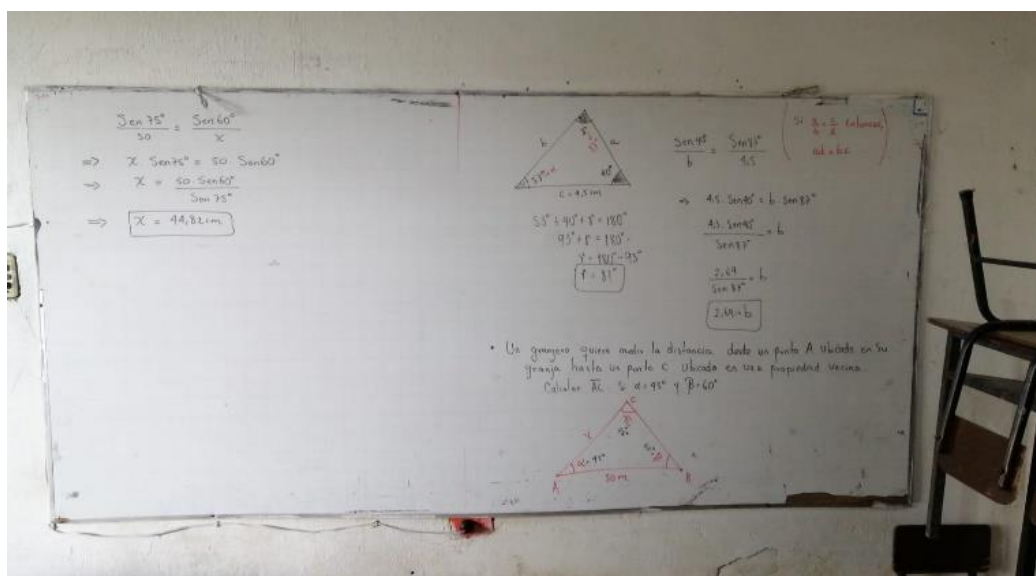 Sen 75° / 50 = Sen 60° / x
=> x · Sen 75° = 50 · Sen 60°
=> x = 50 · Sen 60° / Sen 75°
=> x = 44,82 cm
b
a
53°
c = 4,5 cm
53° + 40° + γ = 180°
93° + γ = 180°
γ = 180° - 93°
γ = 87°
Sen 40° / b = Sen 87° / 4,5
=> 4,5 · Sen 40° = b · Sen 87°
4,5 · Sen 40° / Sen 87° = b
2,89 / Sen 87° = b
= b
Si entonces
Un granjero quiere medir la distancia desde un punto A ubicado en su
granja hasta un punto C ubicado en una propiedad vecina.
Calcular AC si α = 45° y β = 60°
C
x
α = 45°
β
A
50 m
B